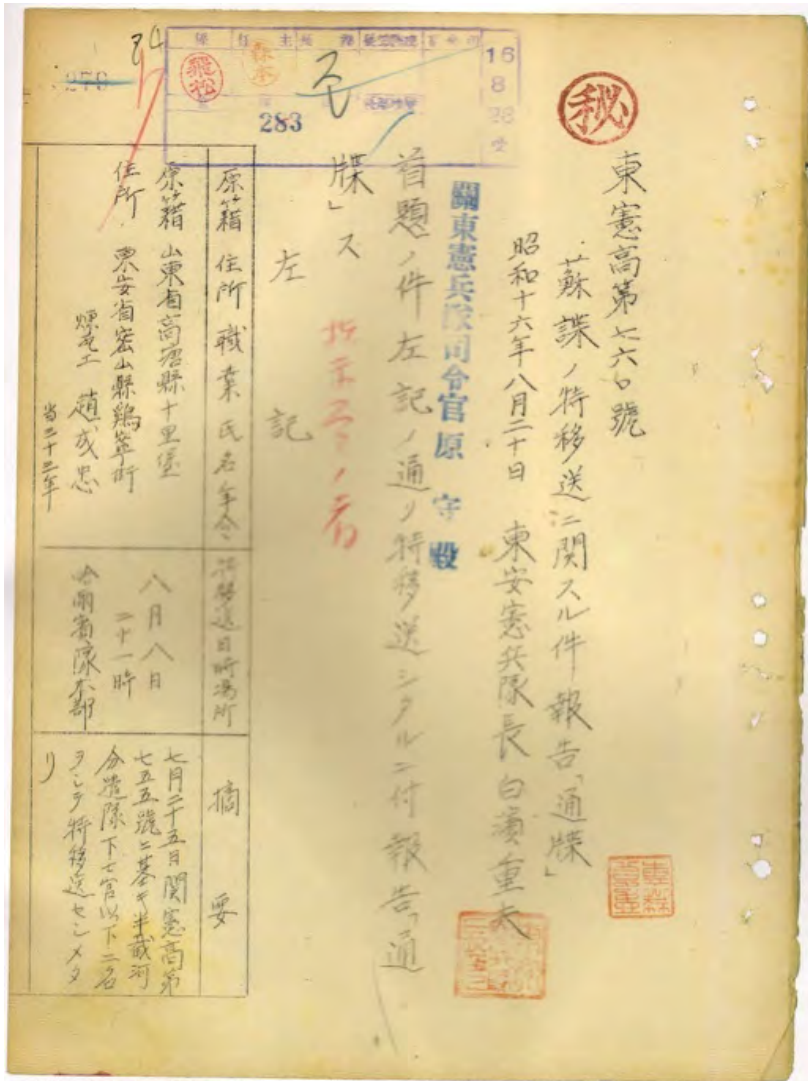 秘
東憲高第七六〇號
蘇諜ノ特移送ニ関スル件報告「通牒」
昭和十六年八月二十日 東安憲兵隊長白濱重夫
關東憲兵隊司令官原 守殿
首題ノ件左記ノ通リ特移送シタルニ付報告「通
牒」ス
左記
原籍 住所 職業 氏名 年令
特移送日時場所
摘要
原籍 山東省高唐縣十里堡
住所 東安省密山縣鶏寧街
煉瓦工 趙成忠
当二十三年
八月八日
二十一時
哈爾濱隊本部
七月二十五日関憲高第
七五五號ニ基キ半截河
分遣隊下士官以下二名
ヲシテ特移送セシメタ
リ
16
8
28
受
283
主任